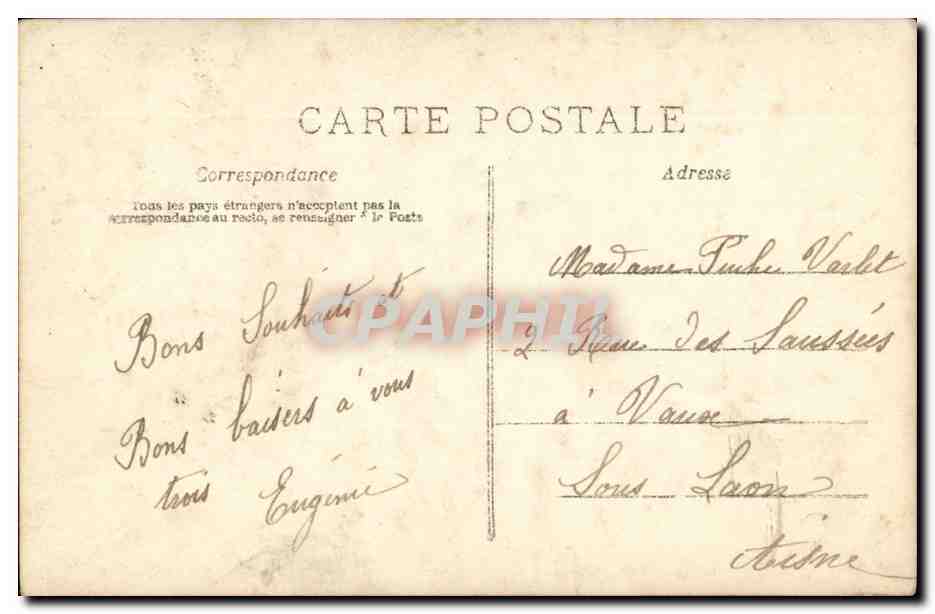 CARTE POSTALE
Correspondance
Tous les pays étrangers n'acceptent pas la
correspondance au recto, se renseigner à la Poste
Bons Souhaits et
Bons baisers à vous
trois Eugénie
Adresse
Madame Varlet
2 Rue des Saussées
à Vaux
Sous Laon
Aisne
CPAPHIL